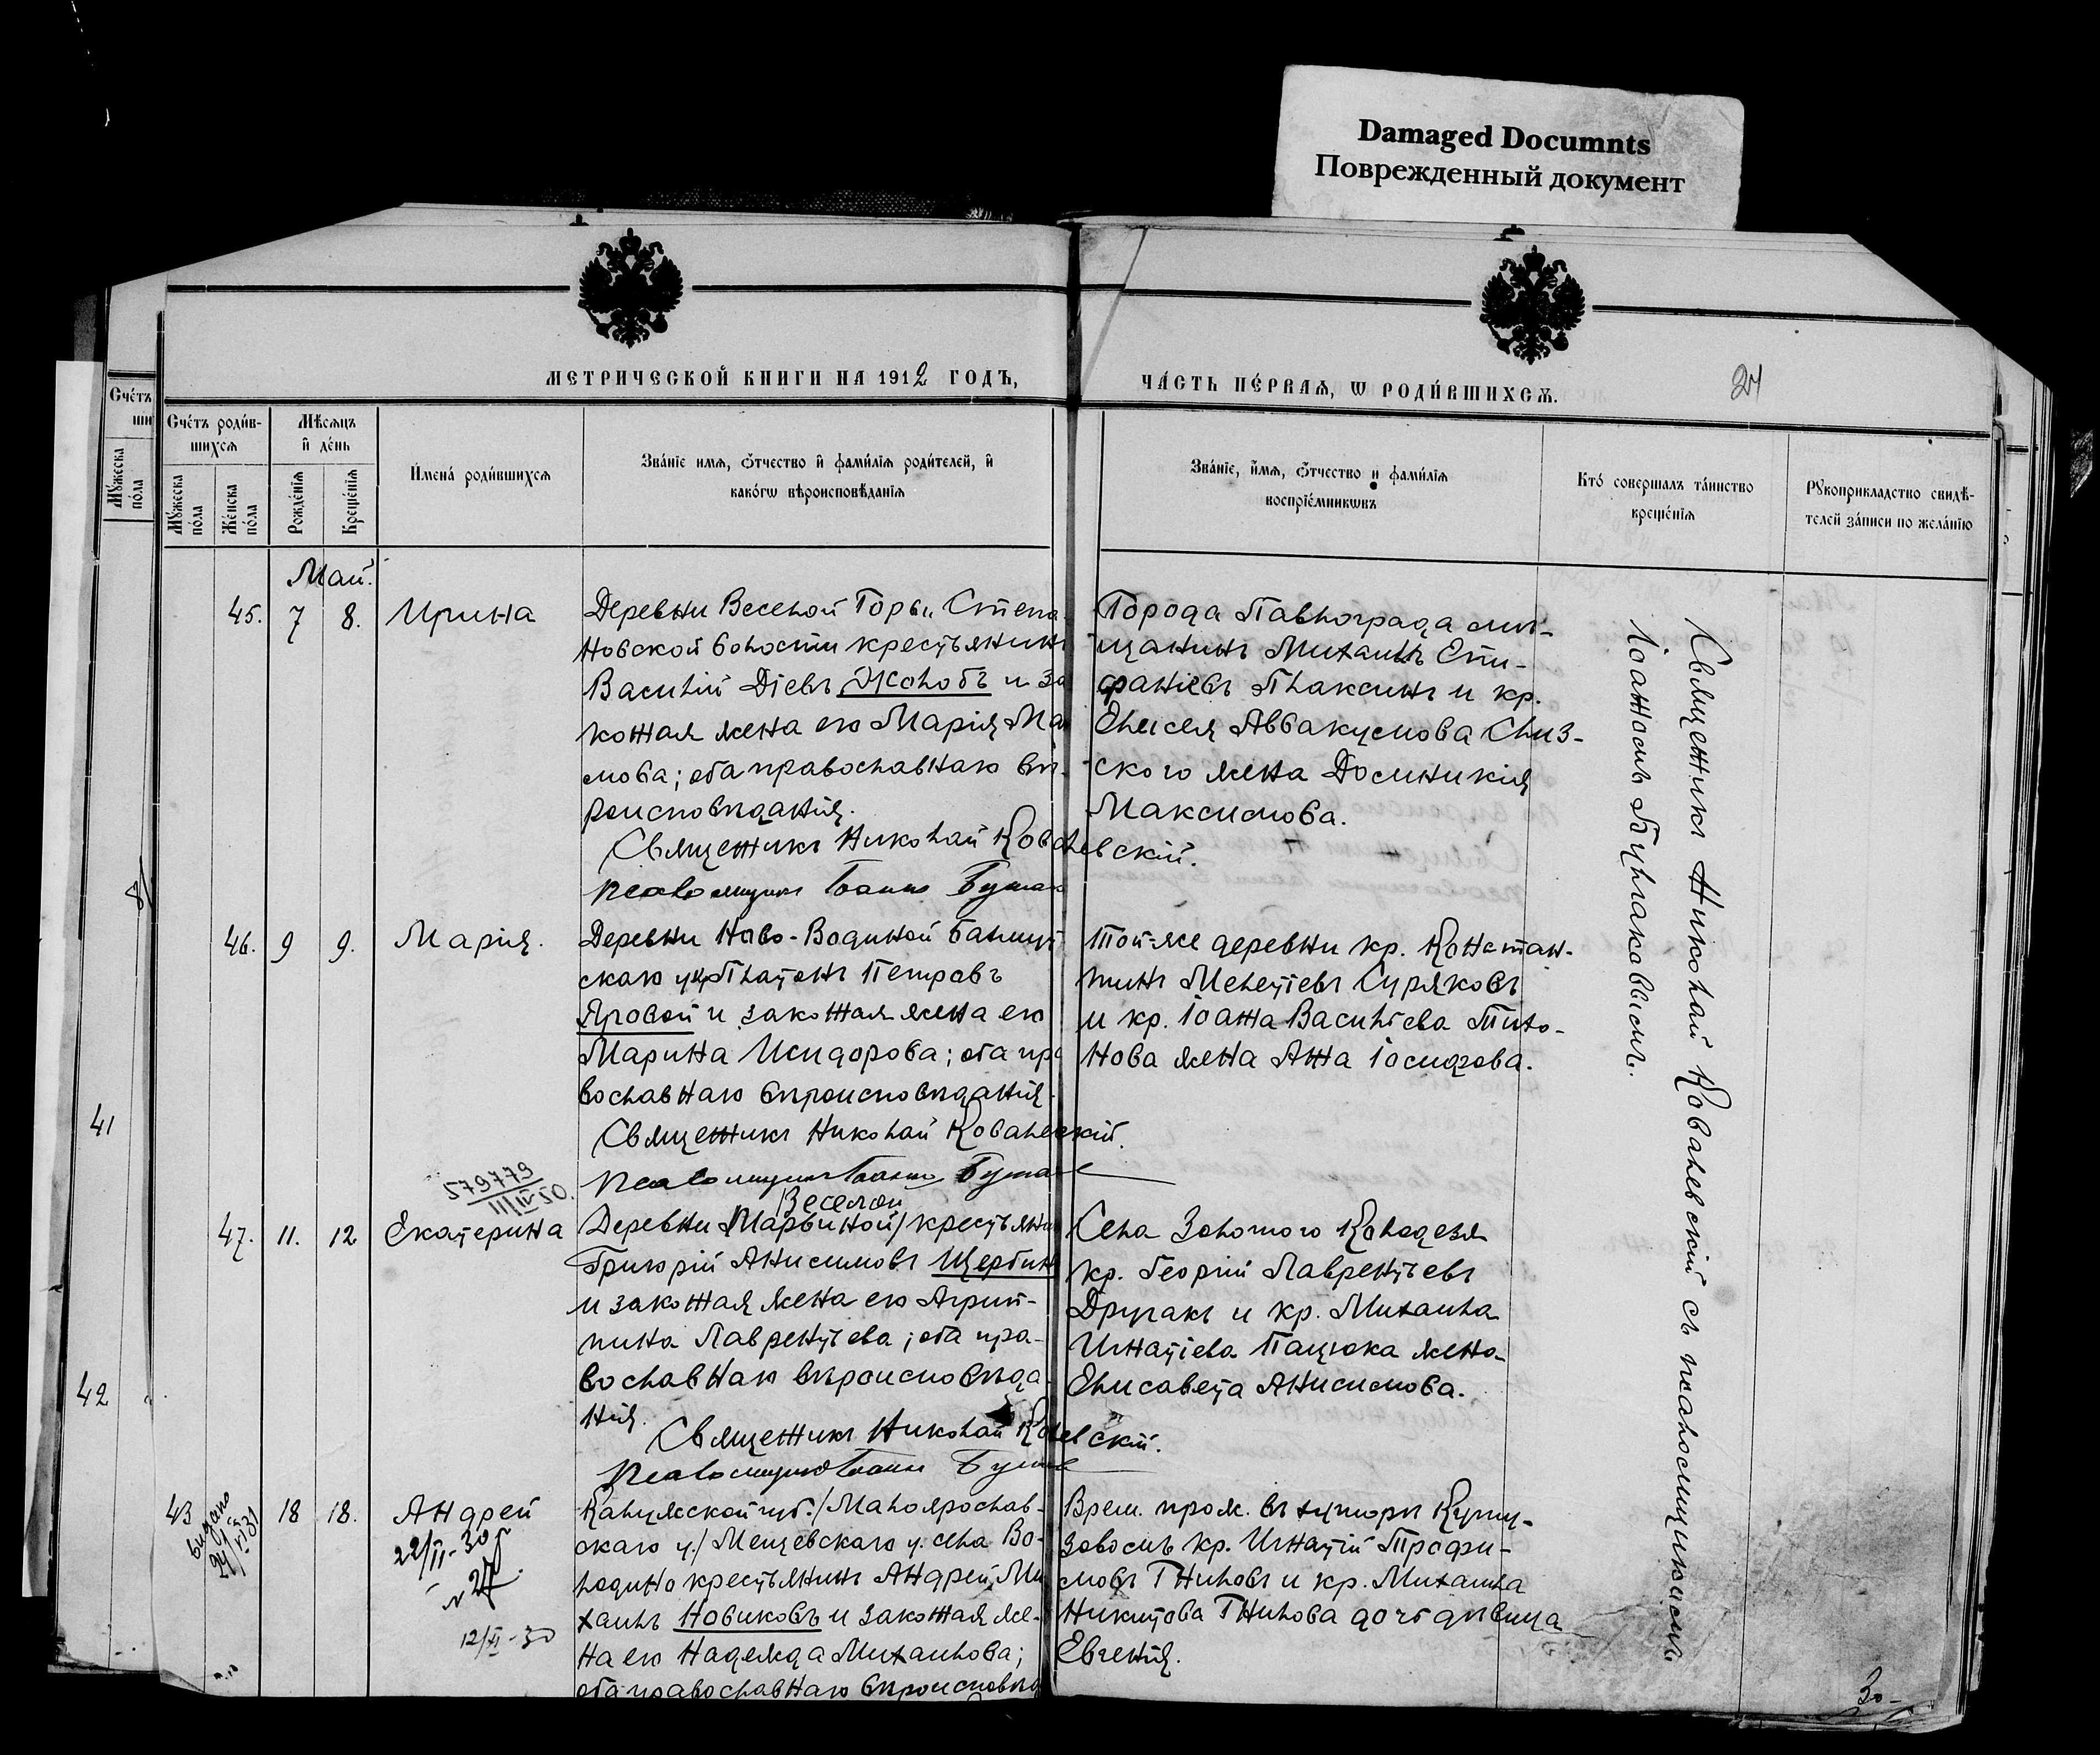 Damaged Documnts
Поврежденный документ
МЕТРИЧЕСКОЙ КНИГИ НА 1912 ГОДЪ,
ЧАСТЬ ПЕРВАЯ, Ѡ РОДИВШИХСЯ.
24
Счетъ
ши
Мꙋжеска пола
Счетъ родив-
шихся
Мѣсяцъ
и день
Мꙋжеска пола
Женска пола
Рожденія
Крещенія
Имена родившихся
Званіе имя, ѿчество и фамилія родителей, и
какогѡ вѣроисповѣданія
Званіе, имя, ѿчество и фамилія
воспріемникѡвъ
Кто совершалъ таинство
крещенія
Рꙋкоприкладство свидѣ-
телей записи по желанію
41
42
Май.
45. 7 8. Ирина
Деревни Веселой Горы, Степа
новской волости крестьянинъ
Василій Діевъ Жолобъ и за
конная жена его Марія Ма
мова; оба православнаго вѣ-
роисповѣданія.
Священникъ Николай Ковалевскій.
Псаломщикъ Іоаннъ
Города Павлограда мѣ-
щанинъ Михаилъ Епи-
фаніевъ Плаксинъ и кр.
Елисея Аввакумова Слиз-
ского жена Домникія
Максимова.
46. 9 9. Марія.
Деревни Ново-Водяной Бахмут
скаго у. кр. Платонъ Петровъ
Яровой и законная жена его
Марина Исидорова; оба пра
вославнаго вѣроисповѣданія.
Священникъ Николай Ковалевскій.
Псаломщикъ Іоаннъ
Той-же деревни кр. Констан-
тинъ Мелетіевъ Суряковъ
и кр. Іоанна Василіева Тихо-
нова жена Анна Іосифова.
579779
III 50.
47. 11. 12 Екатерина
Веселой
Деревни Марьиной/крестьянин
Григорій Анисимовъ Щербин
и законная жена его Агрип-
пина Лаврентьева; оба пра-
вославнаго вѣроисповѣда
нія.
Священникъ Николай Ковалевскій.
Псаломщикъ Іоаннъ
Села Золотого Колодезя
кр. Георгій Лаврентьевъ
Другакъ и кр. Михаила
Игнатіева Пацюка жена
Елисавета Анисимова.
43 18 18. Андрей
видано
22/II-30
№ 27
12/II-30
Калужской губ./Малоярослав-
скаго у./Мещевскаго у. села Во-
лодино крестьянинъ Андрей Ми
хаилъ Новиковъ и законная же-
на его Надежда Михаилова;
оба православнаго вѣроисповѣд
Врем. прож. въ хуторѣ Куту-
зовомъ кр. Игнатій Трофи-
мовъ Гниловъ и кр. Михаила
Никитова Гнилова дочь дѣвица
Евгенія.
Священникъ Николай Ковалевскій съ псаломщикомъ
Іоанномъ
30-